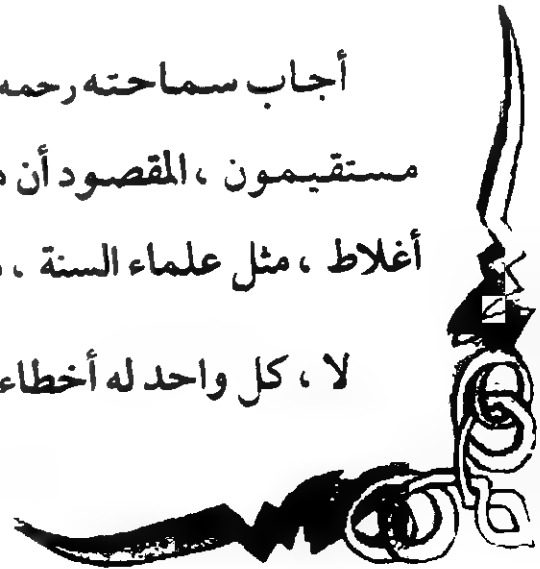 أجاب سماحته رحمه
مستقيمون ، المقصود أن
أغلاط ، مثل علماء السنة ،
لا ، كل واحد له أخطاء